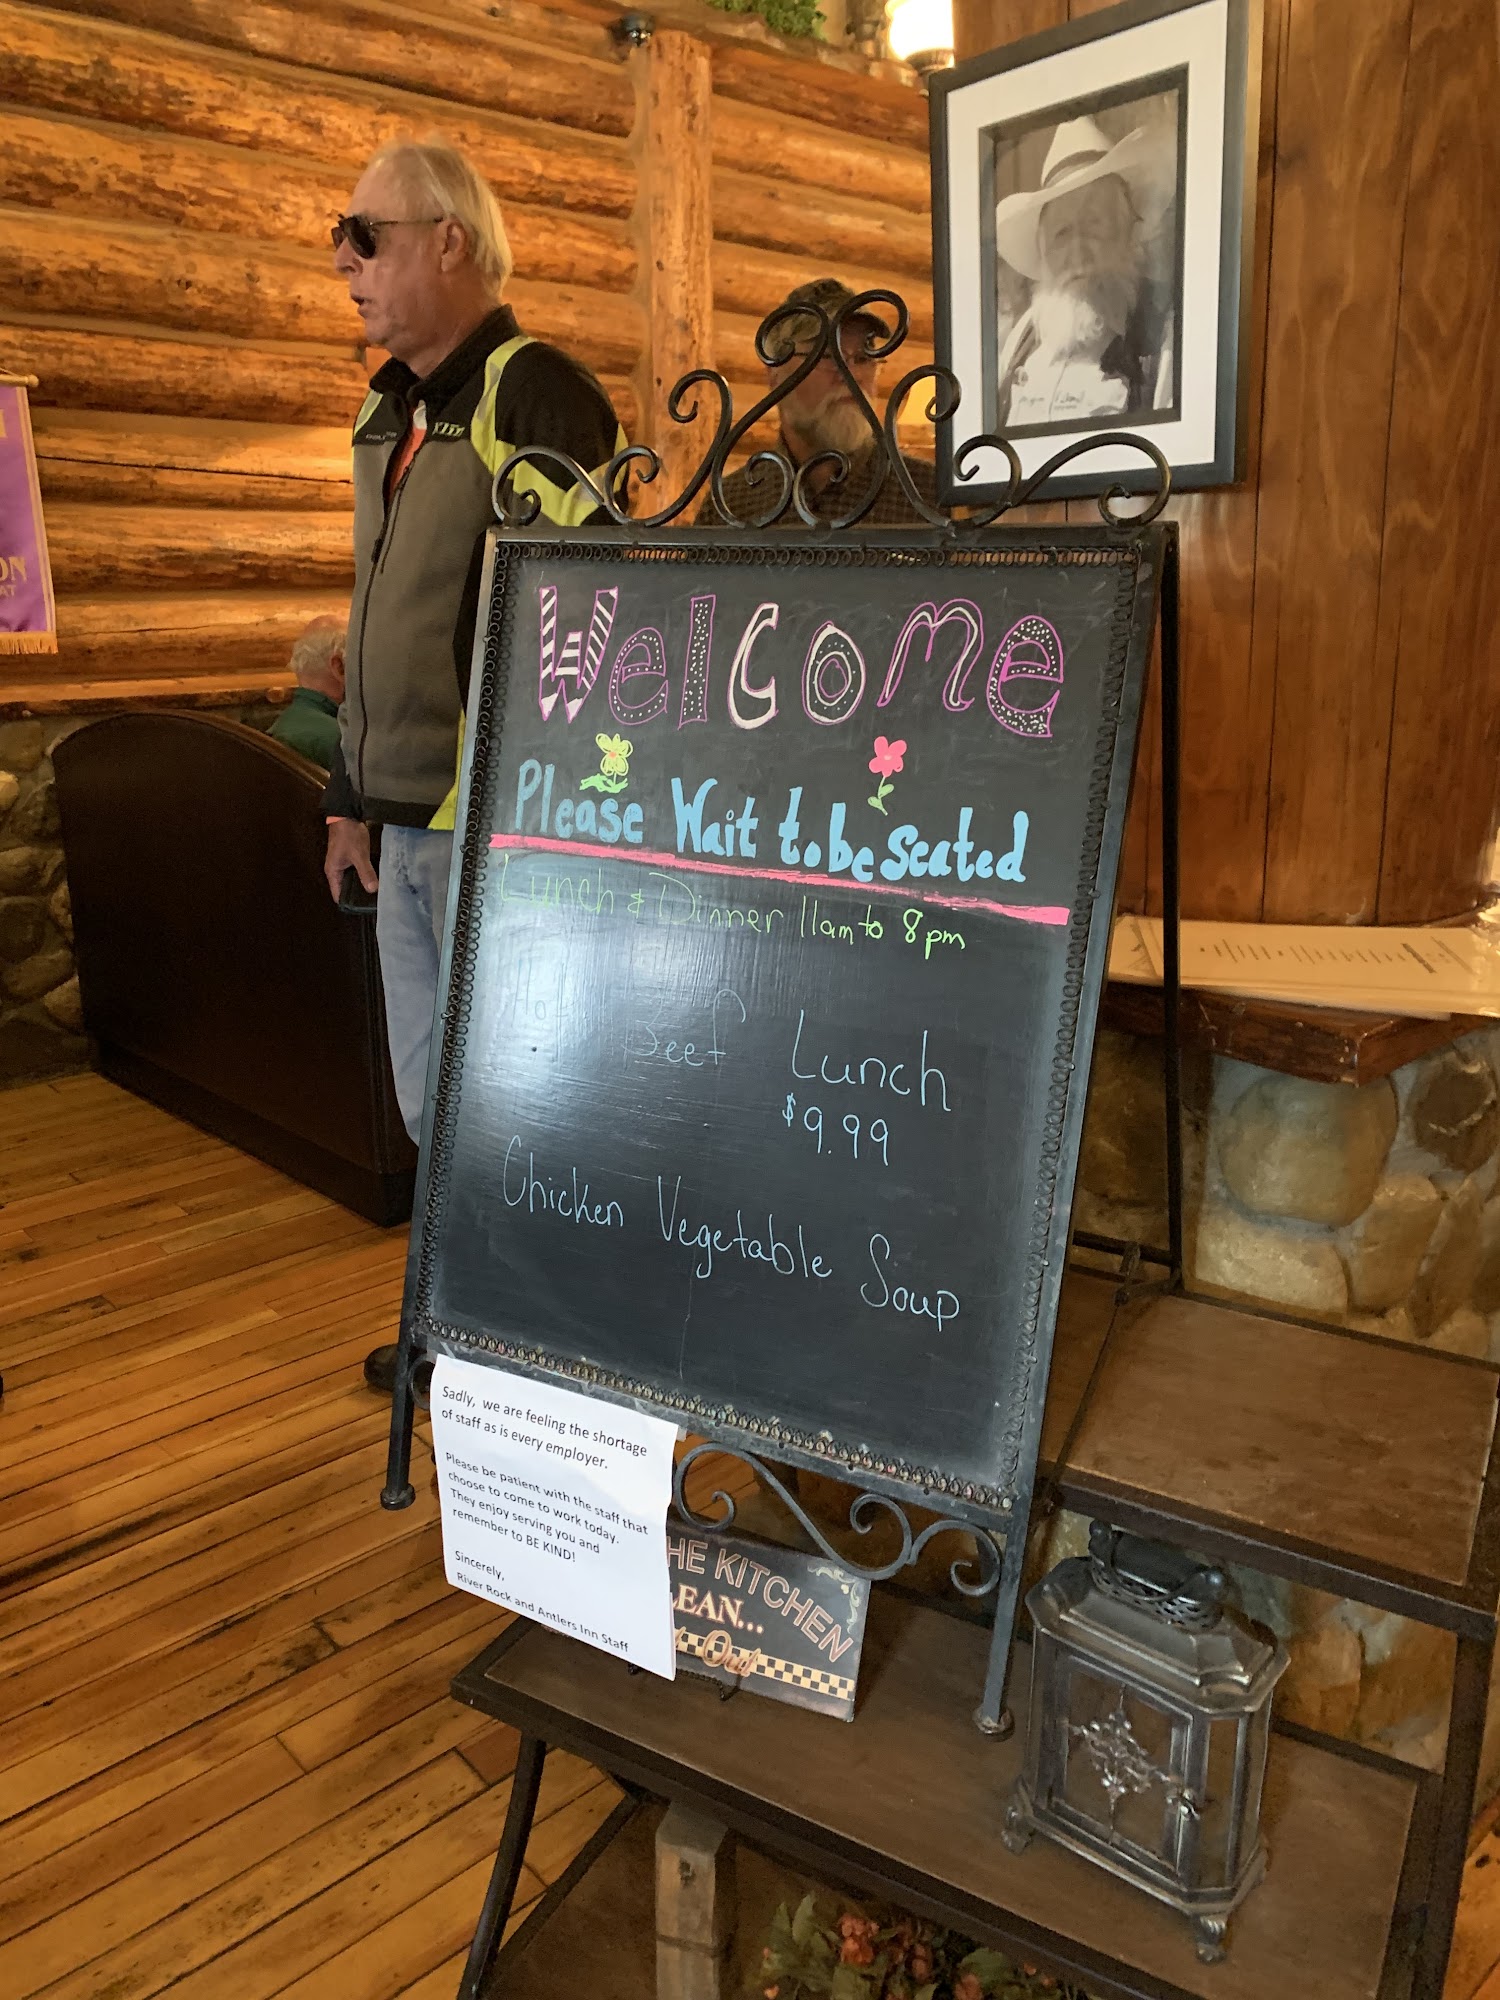 Welcome
Please Wait to be seated
Lunch & Dinner 11am to 8pm
Hot Beef Lunch
$9.99
Chicken Vegetable Soup
Sadly, we are feeling the shortage
of staff as is every employer.
Please be patient with the staff that
choose to come to work today.
They enjoy serving you and
remember to BE KIND!
Sincerely,
River Rock and Antlers Inn Staff
HE KITCHEN
LEAN...
Out
KLIM
ON
AT